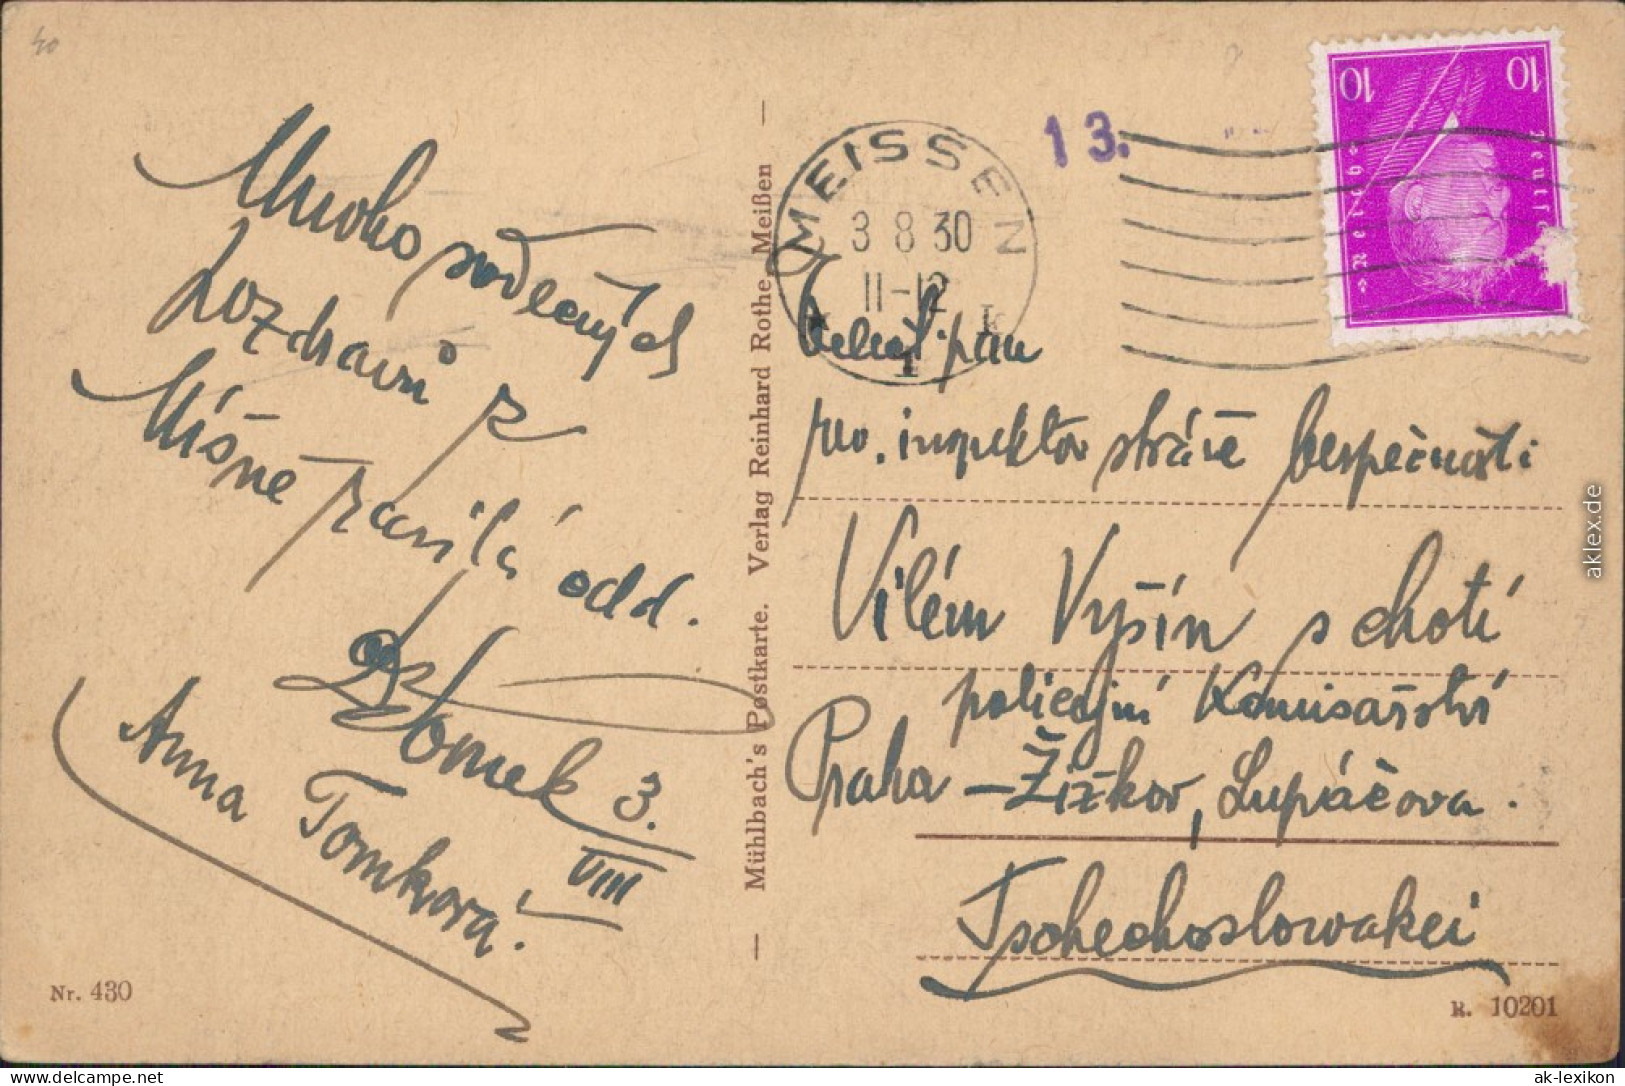 40
Mnoho srdečných
pozdravů z
Míšně zasílá odd.
Tomek 3.
VIII
Anna Tomková.
Nr. 430
Mühlbach's Postkarte. Verlag Reinhard Rothe, Meißen
MEISSEN
3 8 30
11-12
1 3.
10 10
Deutsches Reich
pan
rev. inspektor stráže bezpečnosti
Vilém Vyšín s chotí
policejní komisařství
Praha – Žižkov, Lupáčova.
Tschechoslowakei
R. 10201
aklex.de
www.delcampe.net
ak-lexikon